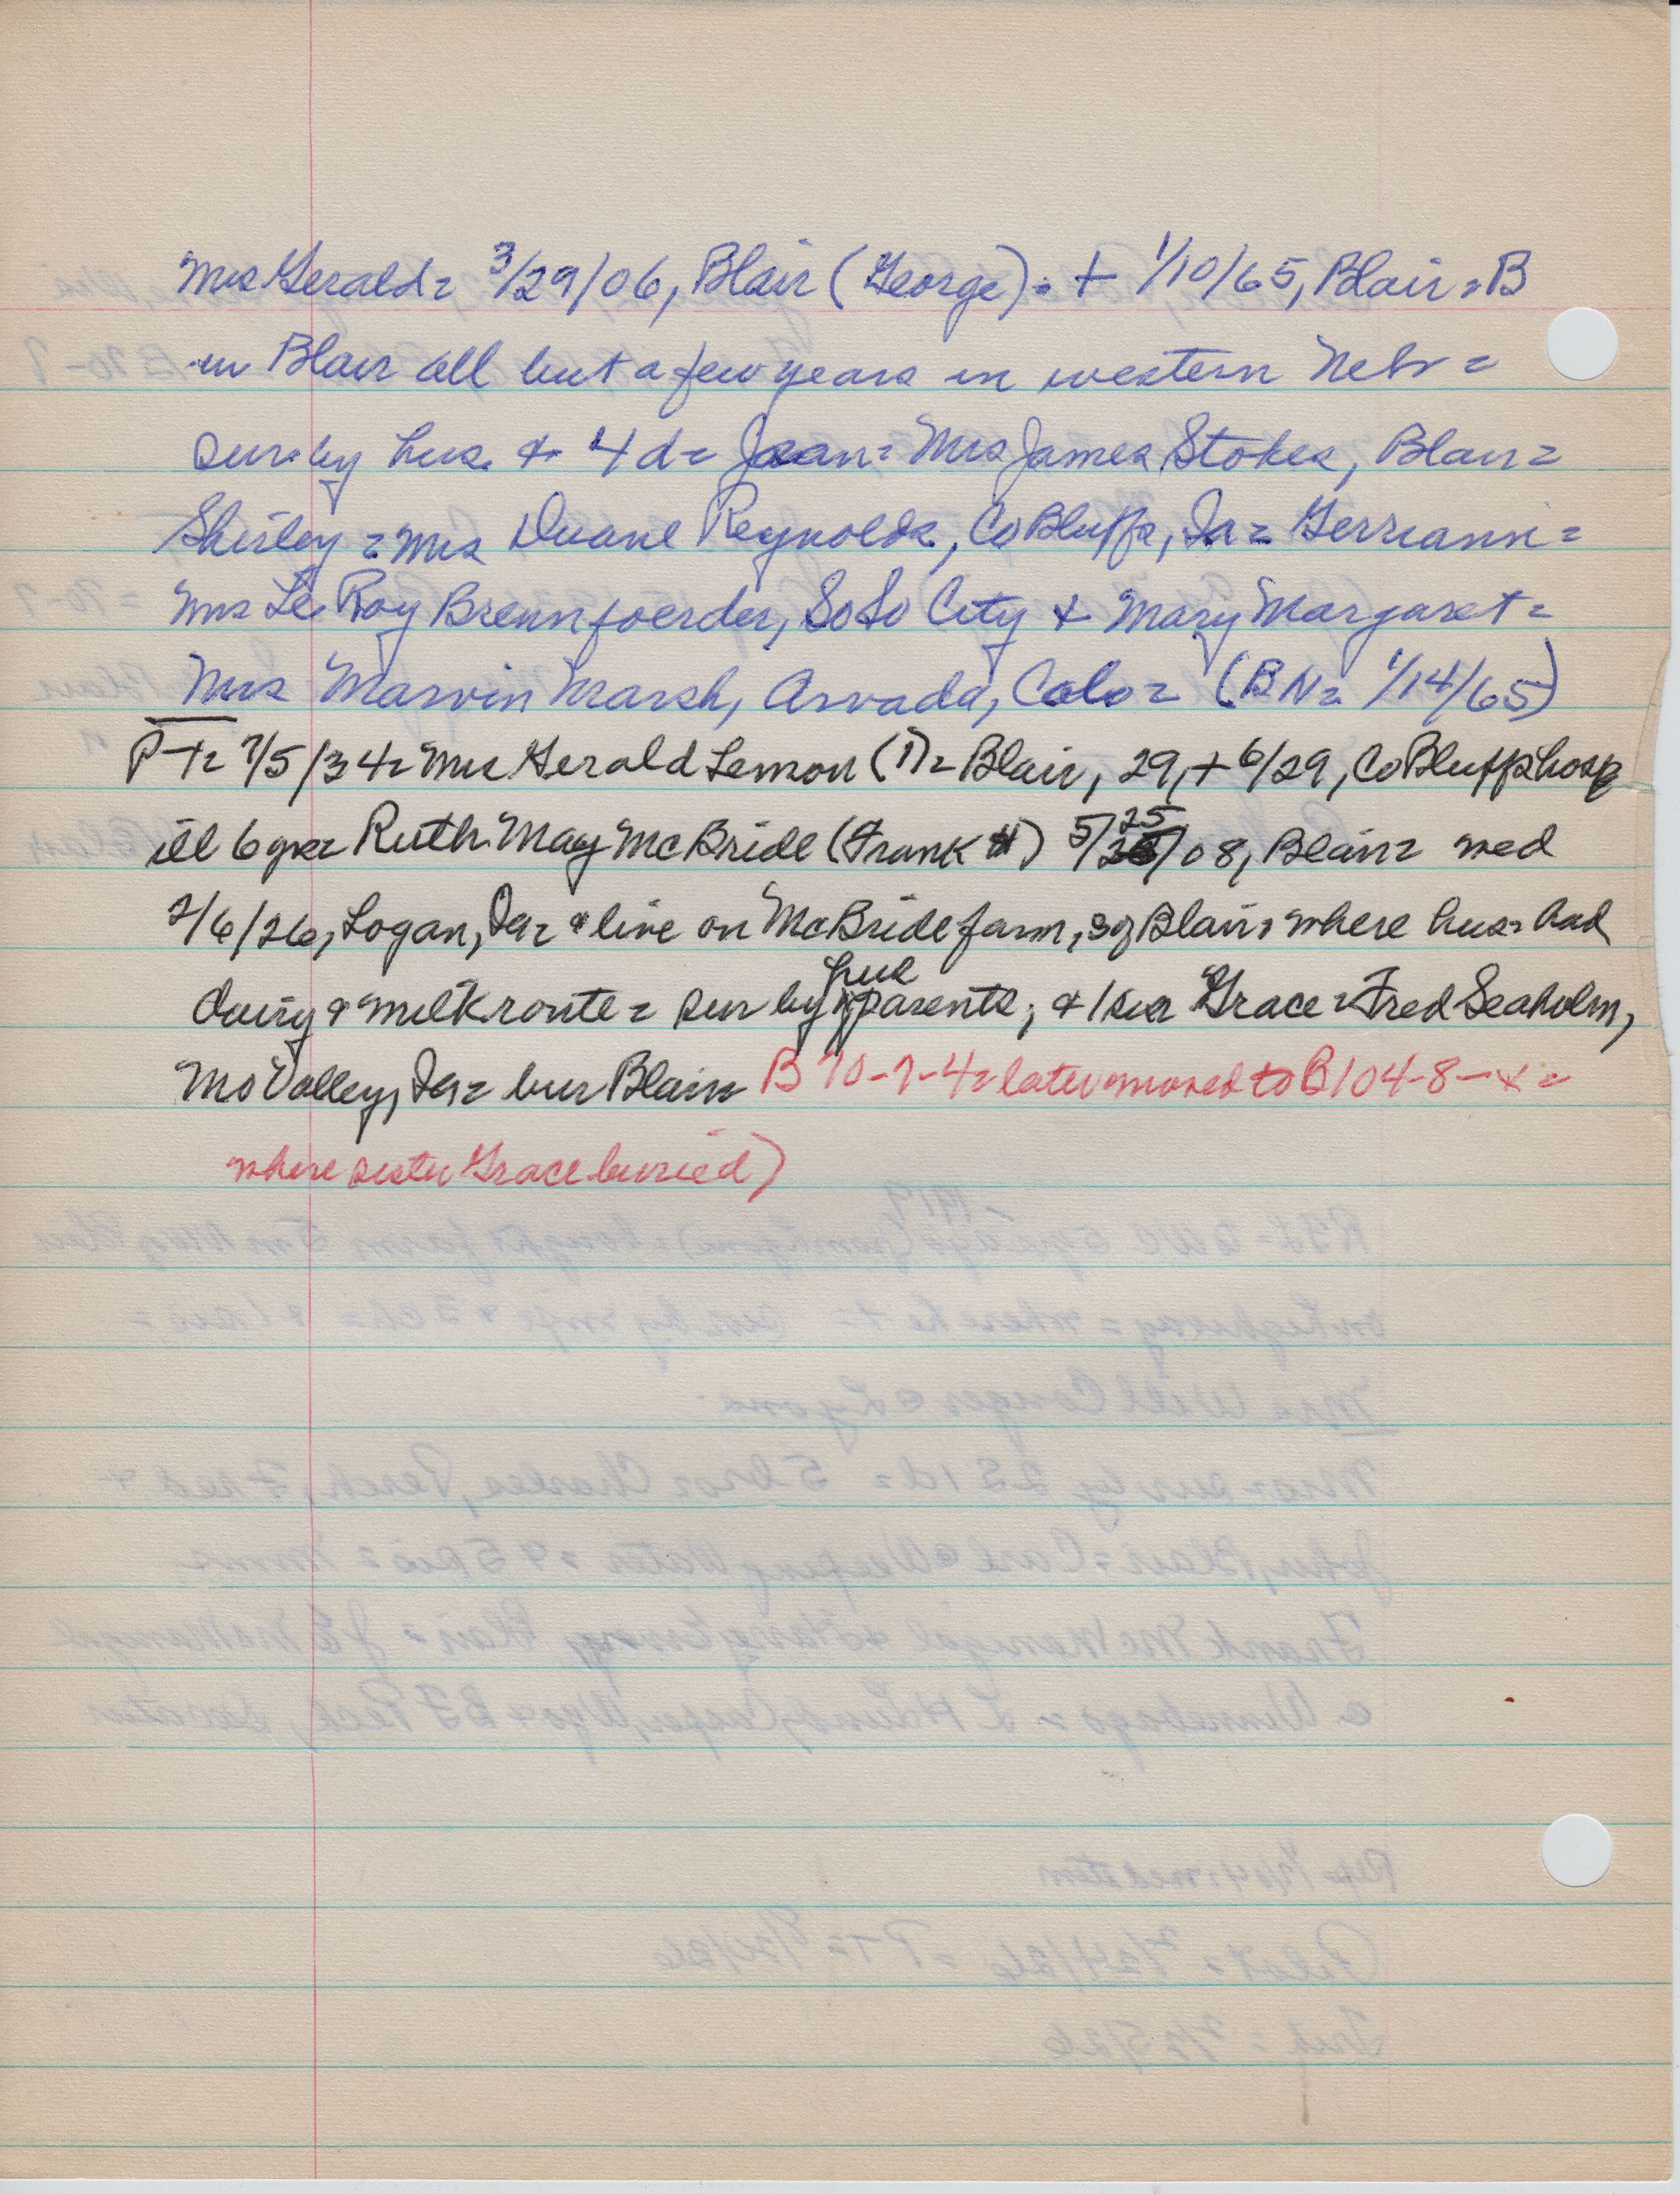 Mrs Gerald = 3/29/06, Blair (George) = + 1/10/65, Blair = B
in Blair all but a few years in western Nebr =
sur. by hus. & 4 d = Joan = Mrs James Stokes, Blair =
Shirley = Mrs Duane Reynolds, Co Bluffs, Ia = Gerriann =
Mrs Le Roy Brennfoerder, So So City & Mary Margaret =
Mrs Marvin Marsh, Arvada, Colo = (BN = 1/14/65)
PT = 7/5/34 = Mrs Gerald Lemon (1) = Blair, 29, + 6/29, Co Bluffs hosp
ill 6 = Ruth May McBride (Frank H) 5/25/08, Blair = wed
2/6/26, Logan, Ia = & live on McBride farm, s of Blair = where hus = had
dairy & milk route = sur by hus parents, & 1 sis Grace = Fred Seaholm,
Mo Valley, Ia = bur Blair B 70-7-4 = later moved to B 104-8-x =
where sister Grace buried)